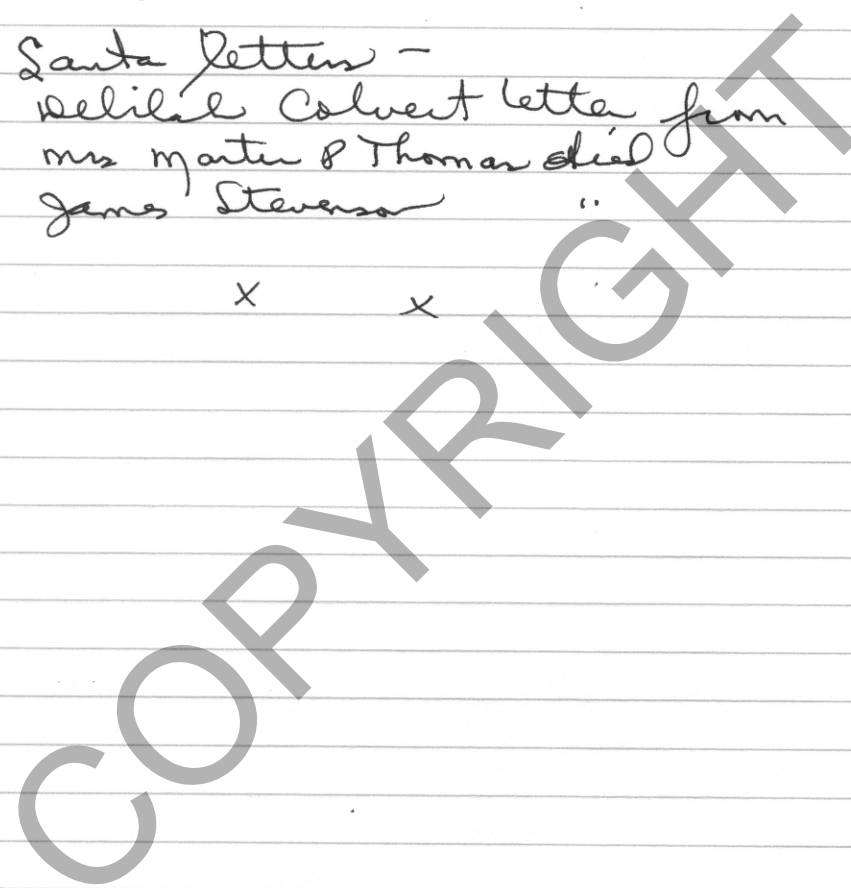 Santa letters –
Delilah Calvert letter from
mrs Martin P Thomas died
James Stevenson "
x x
COPYRIGHT